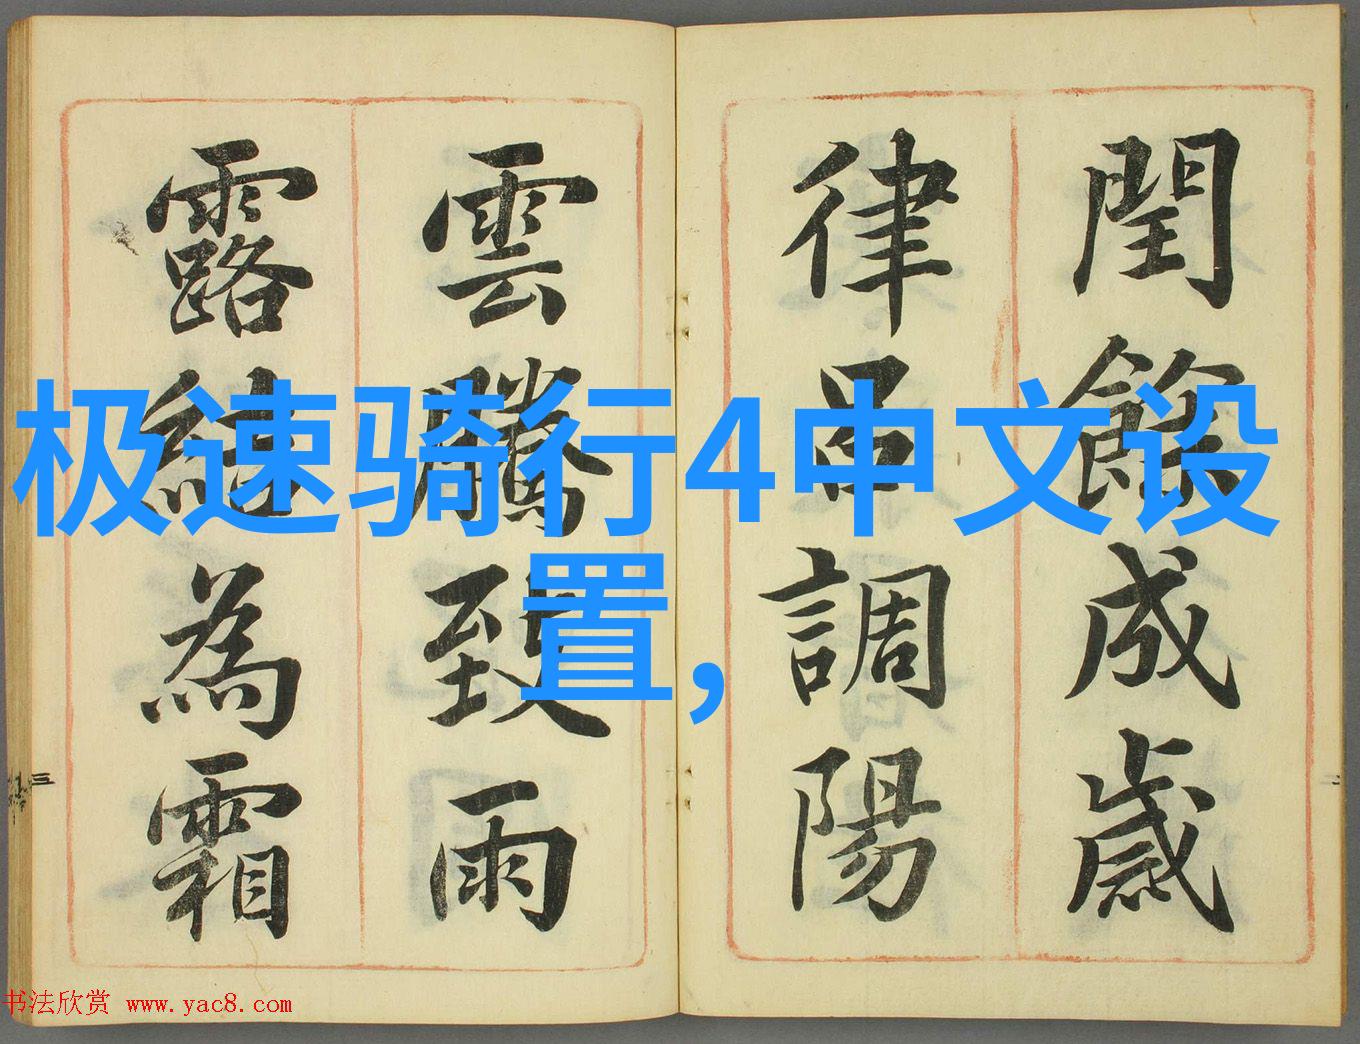 閏餘成歲
律呂調陽
雲騰致雨
露結為霜
极速骑行4中文设
置,
三
书法欣赏 www.yac8.com